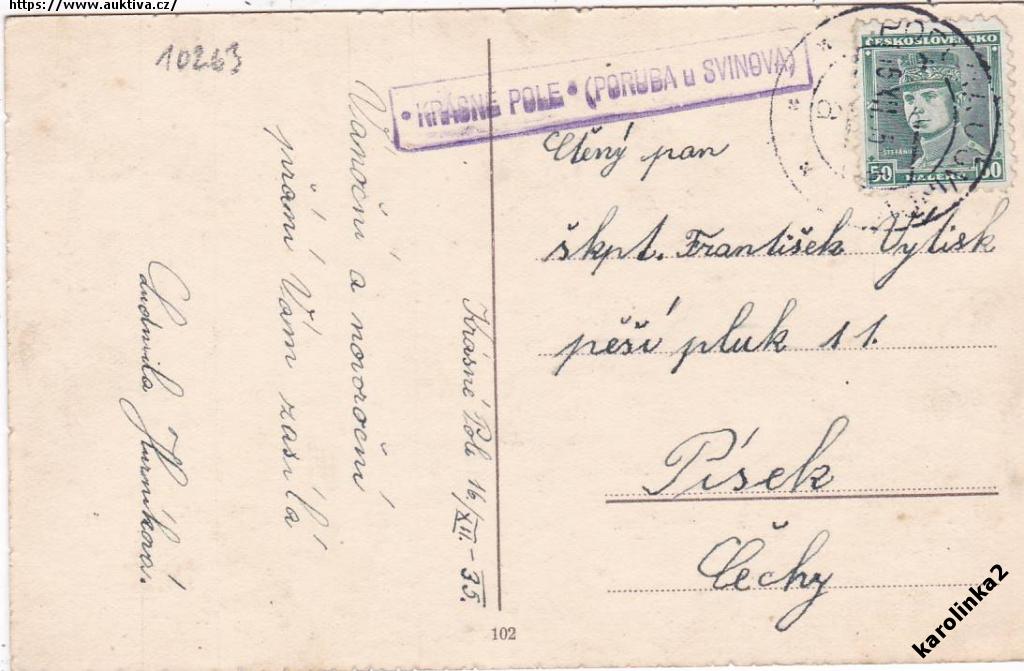 https://www.auktiva.cz/
10263
• KRÁSNÉ POLE • (PORUBA u SVINOVA)
ČESKOSLOVENSKO
50 HALÉŘŮ 50
Ctěný pan
škpt. František Vytisk
pěší pluk 11.
Písek
Čechy
Krásné Pole 16/XII. - 35.
Vánoční a novoroční
přání Vám zasílá
Ludmila Kurníková.
102
karolinka2